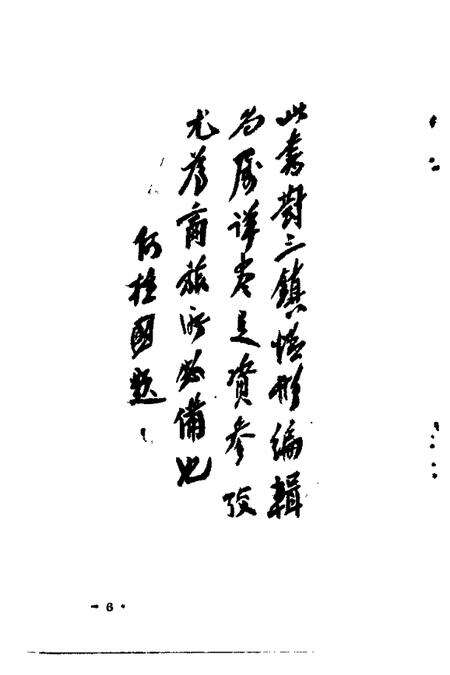 此書對三鎮情形編輯
為屬詳老足資參攷
尤為商旅所必備也
何柱國題
- 6 -